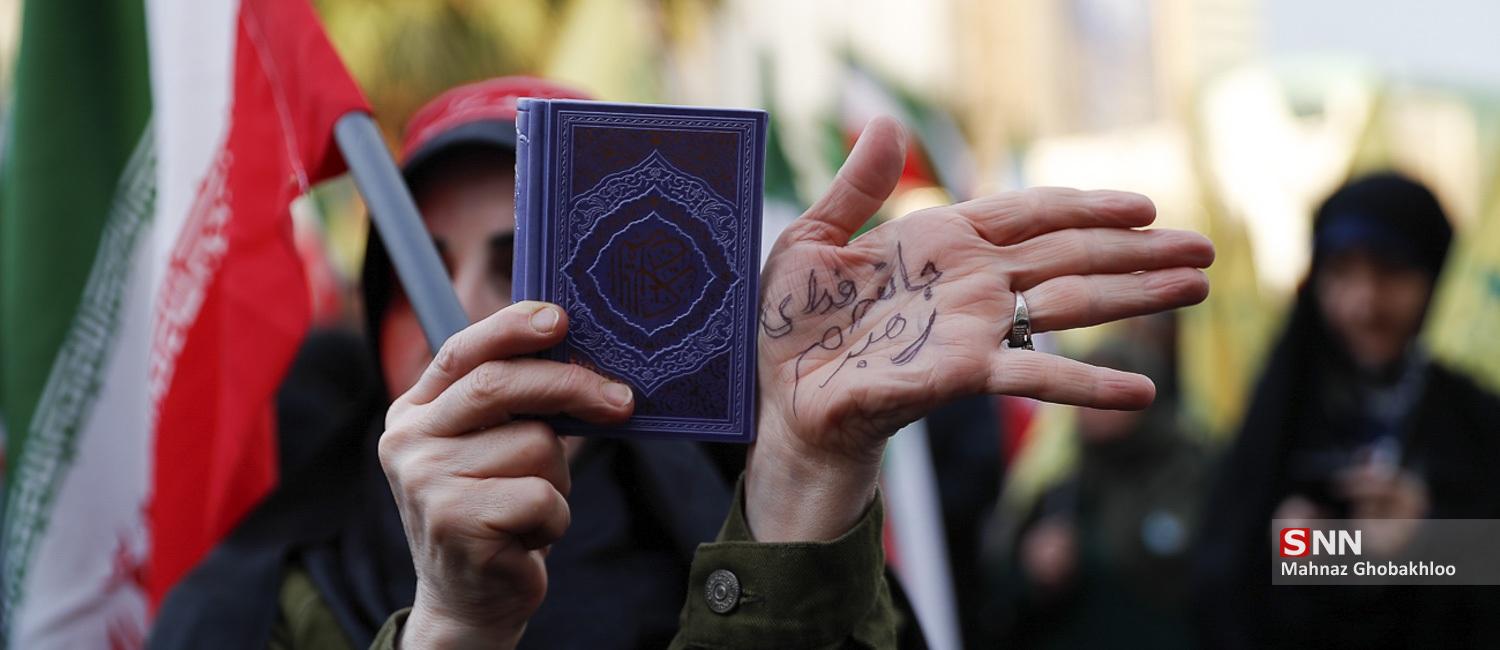 جانم فدای
رهبرم
SNN
Mahnaz Ghobakhloo